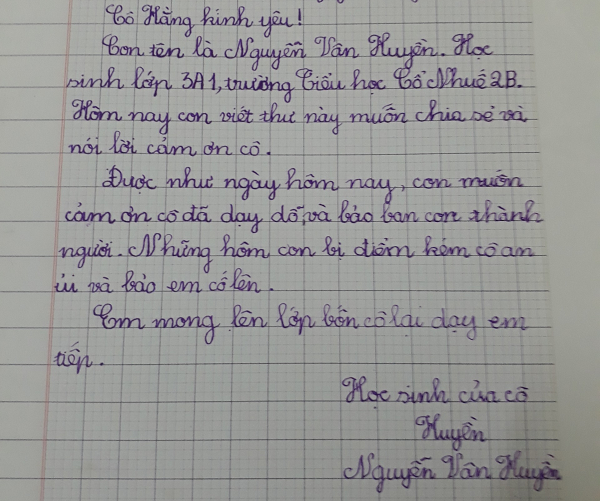 Cô Hằng kính yêu!
Con tên là Nguyễn Vân Huyền. Học
sinh lớp 3A1, trường Tiểu học Cổ Nhuế 2B.
Hôm nay con viết thư này muốn chia sẻ và
nói lời cảm ơn cô.
Được như ngày hôm nay, con muốn
cảm ơn cô đã dạy dỗ, và bảo ban con thành
người. Những hôm con bị điểm kém cô an
ủi và bảo em cố lên.
Em mong lên lớp bốn cô lại dạy em
tiếp.
Học sinh của cô
Huyền
Nguyễn Vân Huyền